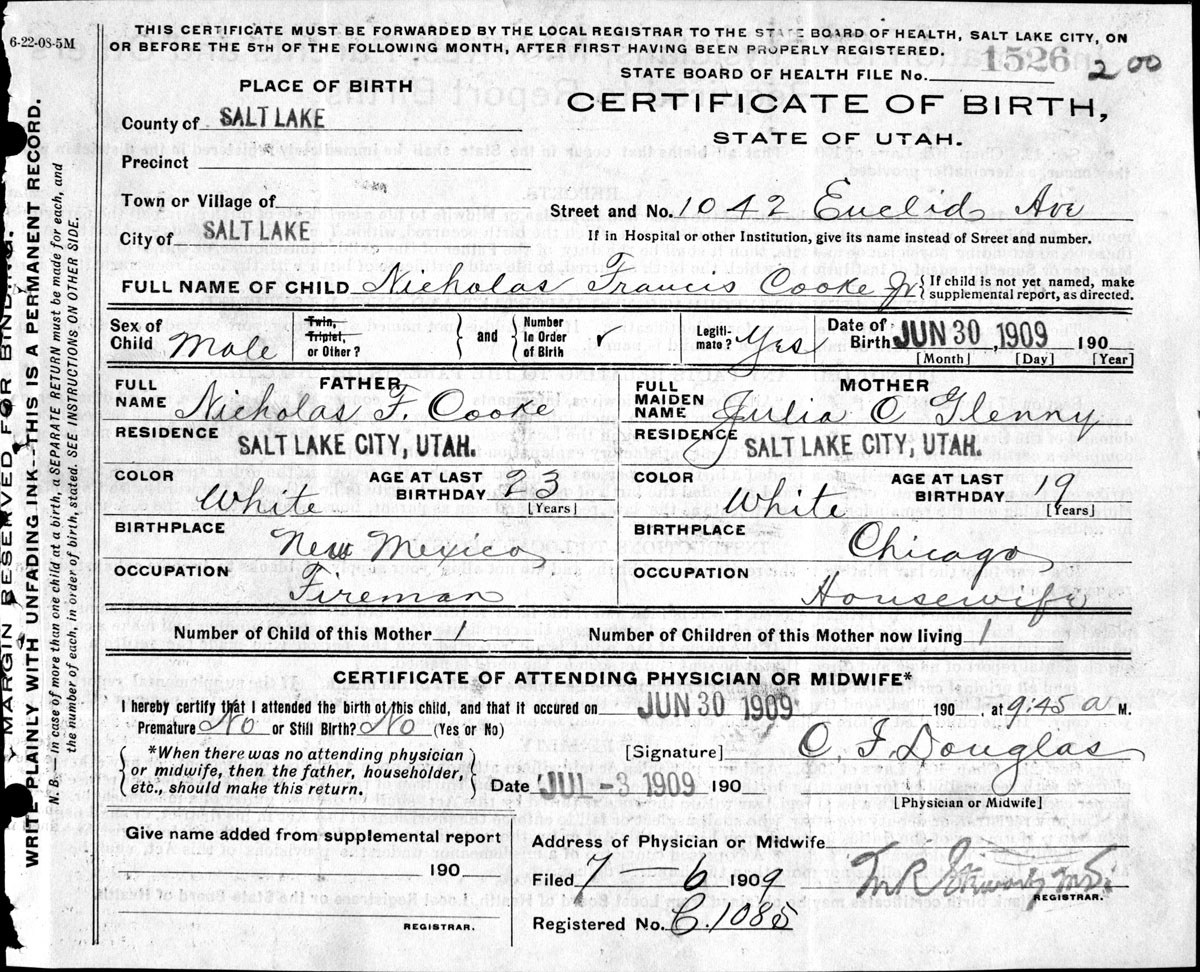 6-22-08-5M
THIS CERTIFICATE MUST BE FORWARDED BY THE LOCAL REGISTRAR TO THE STATE BOARD OF HEALTH, SALT LAKE CITY, ON
OR BEFORE THE 5TH OF THE FOLLOWING MONTH, AFTER FIRST HAVING BEEN PROPERLY REGISTERED.
STATE BOARD OF HEALTH FILE No. 1526 200
PLACE OF BIRTH
CERTIFICATE OF BIRTH,
STATE OF UTAH.
County of SALT LAKE
Precinct
Town or Village of
Street and No. 1042 Euclid Ave
City of SALT LAKE
If in Hospital or other Institution, give its name instead of Street and number.
FULL NAME OF CHILD Nicholas Francis Cooke Jr. { If child is not yet named, make
supplemental report, as directed.
Sex of Child Male
Twin, Triplet, or Other? } and { Number in Order of Birth
Legiti- mate? Yes
Date of Birth JUN 30 1909 190
[Month] [Day] [Year]
FATHER
FULL NAME Nicholas F. Cooke
MOTHER
FULL MAIDEN NAME Julia C Glenny
RESIDENCE SALT LAKE CITY, UTAH.
RESIDENCE SALT LAKE CITY, UTAH.
COLOR White AGE AT LAST BIRTHDAY 23 [Years]
COLOR White AGE AT LAST BIRTHDAY 19 [Years]
BIRTHPLACE New Mexico
BIRTHPLACE Chicago
OCCUPATION Fireman
OCCUPATION Housewife
Number of Child of this Mother 1 Number of Children of this Mother now living 1
CERTIFICATE OF ATTENDING PHYSICIAN OR MIDWIFE*
I hereby certify that I attended the birth of this child, and that it occured on JUN 30 1909 190 at 9:45 a M.
Premature No or Still Birth? No (Yes or No)
*When there was no attending physician
or midwife, then the father, householder,
etc., should make this return.
[Signature] C. F. Douglas
Date JUL -3 1909 190
[Physician or Midwife]
Give name added from supplemental report
190
REGISTRAR.
Address of Physician or Midwife
Filed 7 6 1909
REGISTRAR.
Registered No. C. 1085
MARGIN RESERVED FOR BINDING.
WRITE PLAINLY WITH UNFADING INK--THIS IS A PERMANENT RECORD.
N. B. In case of more than one child at a birth, a SEPARATE RETURN must be made for each, and
the number of each, in order of birth, stated. SEE INSTRUCTIONS ON OTHER SIDE.